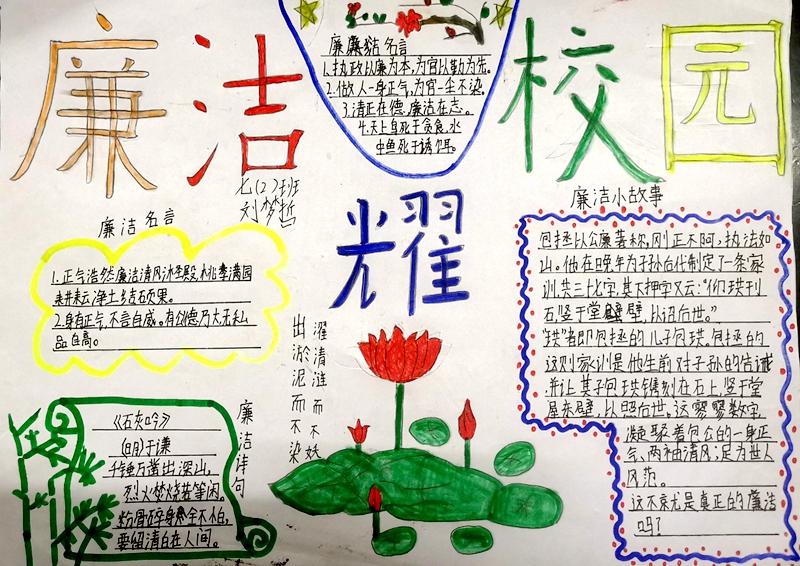 廉洁
校园
耀
廉廉洁名言
1.执政以廉为本,为官以勤为先。
2.做人一身正气,为官一尘不染。
3.清正在德,廉洁在志。
4.天上鸟死于贪食,水
中鱼死于诱饵。
七(2)班
刘梦哲
廉洁名言
1.正气浩然廉洁清风沐圣殿,桃李满园
耕耘净土结硕果。
2.身有正气,不言自威。有公德乃大无私
品自高。
廉洁小故事
包拯以公廉著称,刚正不阿,执法如
山。他在晚年为子孙后代制定了一条家
训,共三七字,其下押字又云:“仰珙刊
石,竖于堂壁,以诏后世。”
“珙”者即包拯的儿子包珙。包拯的
这则家训是他生前对子孙的告诫
并让其子包珙镌刻在石上,竖于堂
屋东壁,以照后世。这寥寥数字,
凝聚着包公的一身正
气、两袖清风;足为世人
风范。
这不就是真正的廉洁
吗?
濯清涟而不妖
出淤泥而不染
廉洁诗句
《石灰吟》
(明)于谦
千锤万凿出深山,
烈火焚烧若等闲。
粉骨碎身全不怕,
要留清白在人间。